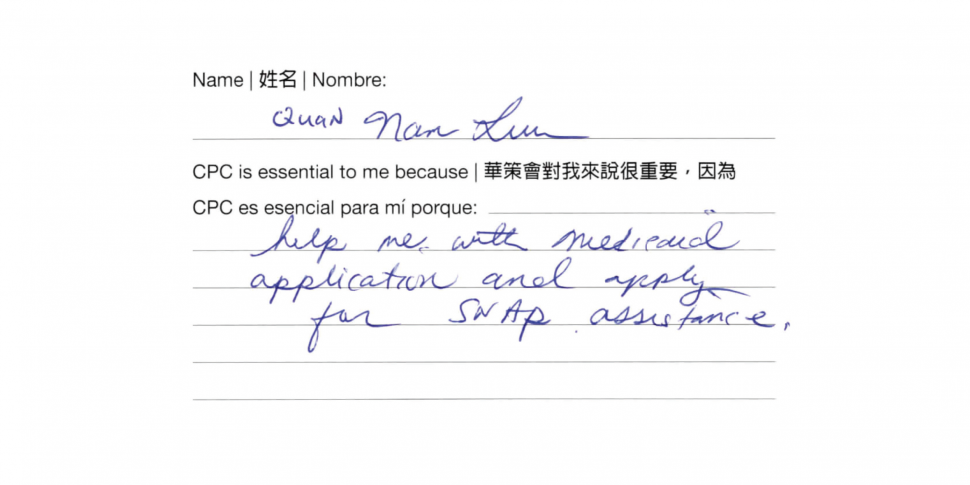 Name | 姓名 | Nombre:
QuaN Nan
CPC is essential to me because | 華策會對我來說很重要，因為
CPC es esencial para mí porque:
help me with medicaid
application and apply
for SNAp assistance.